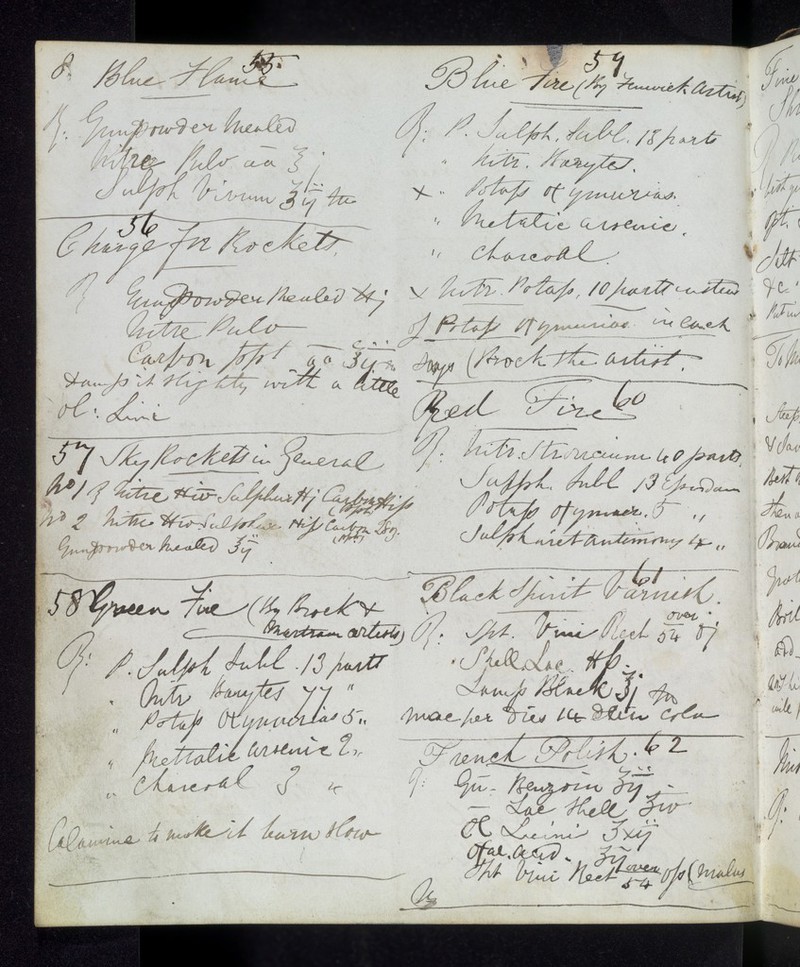 8. Blue Flame 55.
℞: Gunpowder Mealed
Nitre Pulv aa ℥j
Sulph Vivum ℥iij M
56
Charge for Rockets.
℞ Gunpowder Mealed ℔j
Nitre Pulv
Carbon ppt aa ℥iij
damp it slightly with a little
ol: Lini
57 Sky Rockets in General
No 1 ℞ Nitre ℔iv Sulphur ℔j Carbon ℔iſs
(ppt)
No 2 Nitre ℔iv Sulphur ℔iſs Carbon
Gunpowder Mealed ℥ij
58 Green Fire (By Brock &
Martram artists)
℞: P. Sulph Subl. 13 parts
" Nitr Barytes 77 "
" Potass Oxymurias 5 "
" Mettalic arsenic 2 "
" Charcoal 3 "
Calamine to make it burn slow
59
Blue Fire (By Fenwick Artist)
℞: P. Sulph. Subl. 18 parts
" Nitr. Barytes.
× " Potass oxymurias.
" Metalic arsenic.
" Charcoal.
× Nitr. Potass, 10 parts instead
of Potass Oxymurias in each
says (Brock the artist.
Red Fire 60
℞: Nitr. Stroncium 40 parts.
Sulph. Subl 13 Epsodam
Potass oxymur. 5 "
Sulphuret antimony 4 "
61
Black Spirit Varnish.
℞: Spt. Vini Rect over 54 Oj
" Shell Lac ℔ſs.
Lamp Black ℥j M
mac per Dies 14 Dein Cola
French Polish. 62
℞: Gu- Benzoin ℥ij
Lac Shell ℥iv
Ol Lini ℥xij
Oxal. Acid. ℥ij
Spt Vini Rect over 54